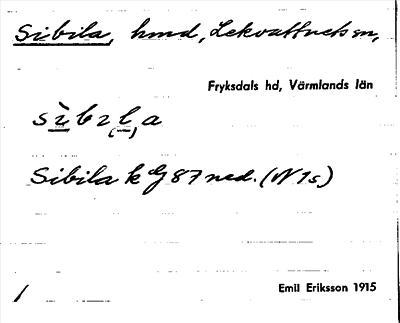 Sibila, hmd, Lekvattnets sn,
Fryksdals hd, Värmlands län
sìbıl̥a
Sibila k G 87 ned. (N 1s)
Emil Eriksson 1915